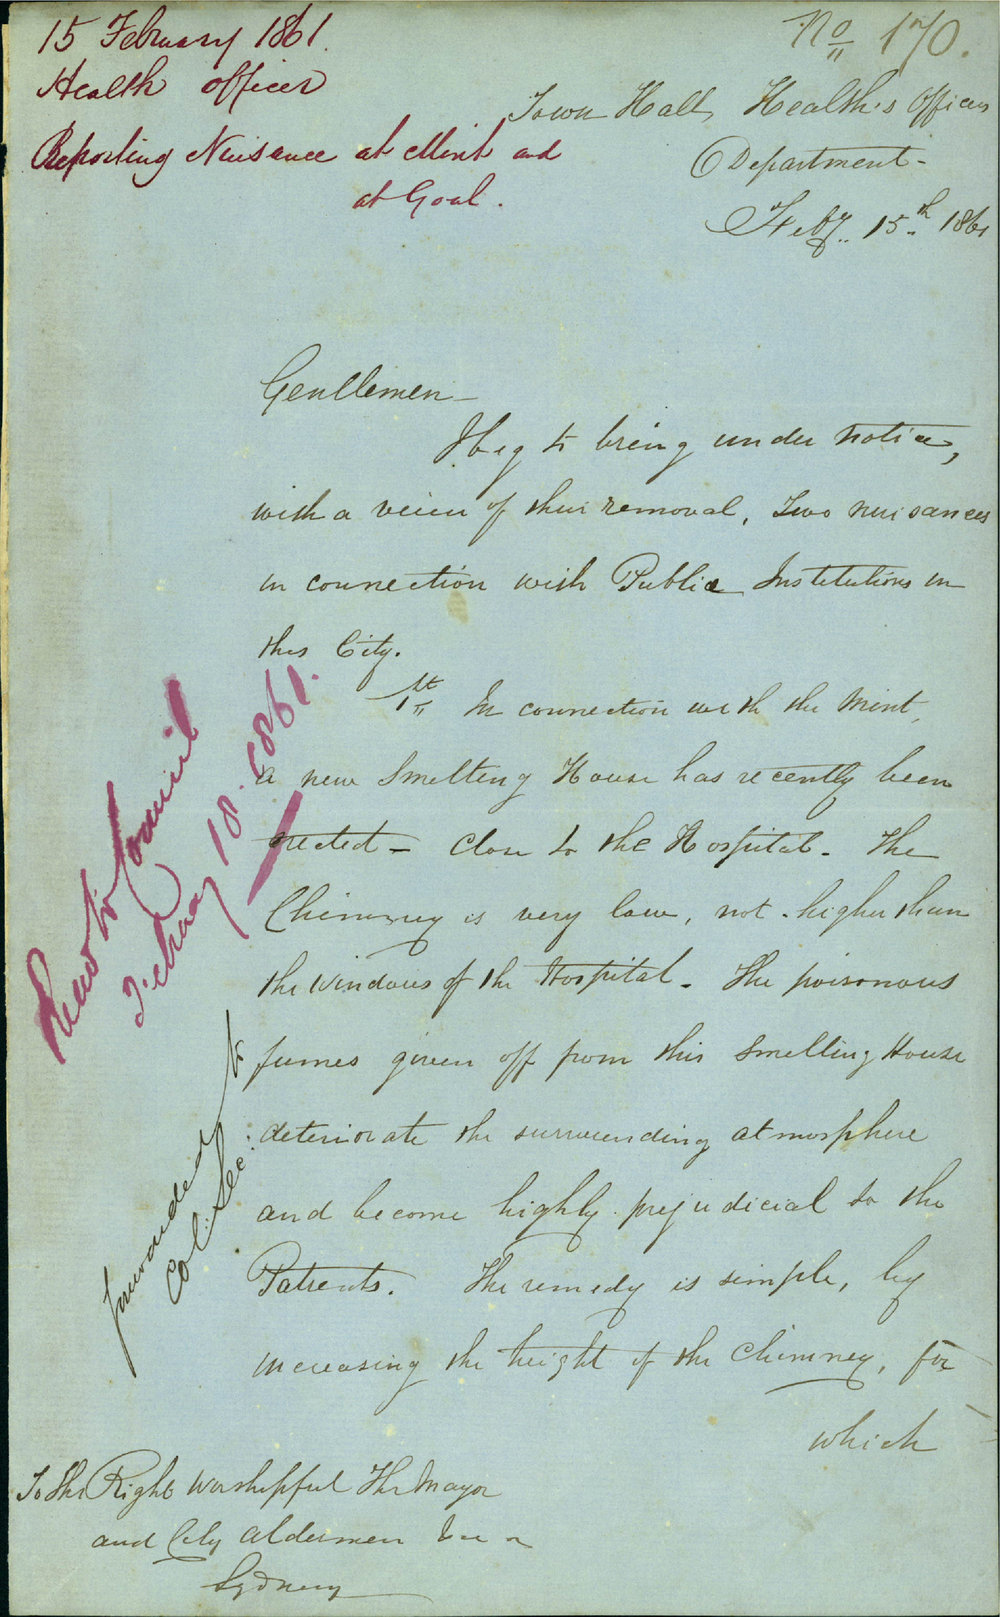 15 February 1861.
Health officer
Reporting Nuisance at Mint and
at Goal.
No 170.
Town Hall, Health's Officers
Department -
Feby. 15th 1861
Gentlemen -
I beg to bring under notice,
with a view of their removal, two nuisances
in connection with Public Institutions in
this City.
1st In connection with the Mint,
a new Smelting House has recently been
erected - Close to the Hospital - The
Chimney is very low, not higher than
the Windows of the Hospital - The poisonous
fumes given off from this Smelting House
deteriorate the surrounding atmosphere
and become highly prejudicial to the
Patients. The remedy is simple, by
increasing the height of the Chimney, for
which
Read to Council
February 18. 1861.
forwarded to
Col: Sec:
To The Right Worshipful The Mayor
and City Aldermen
Sydney